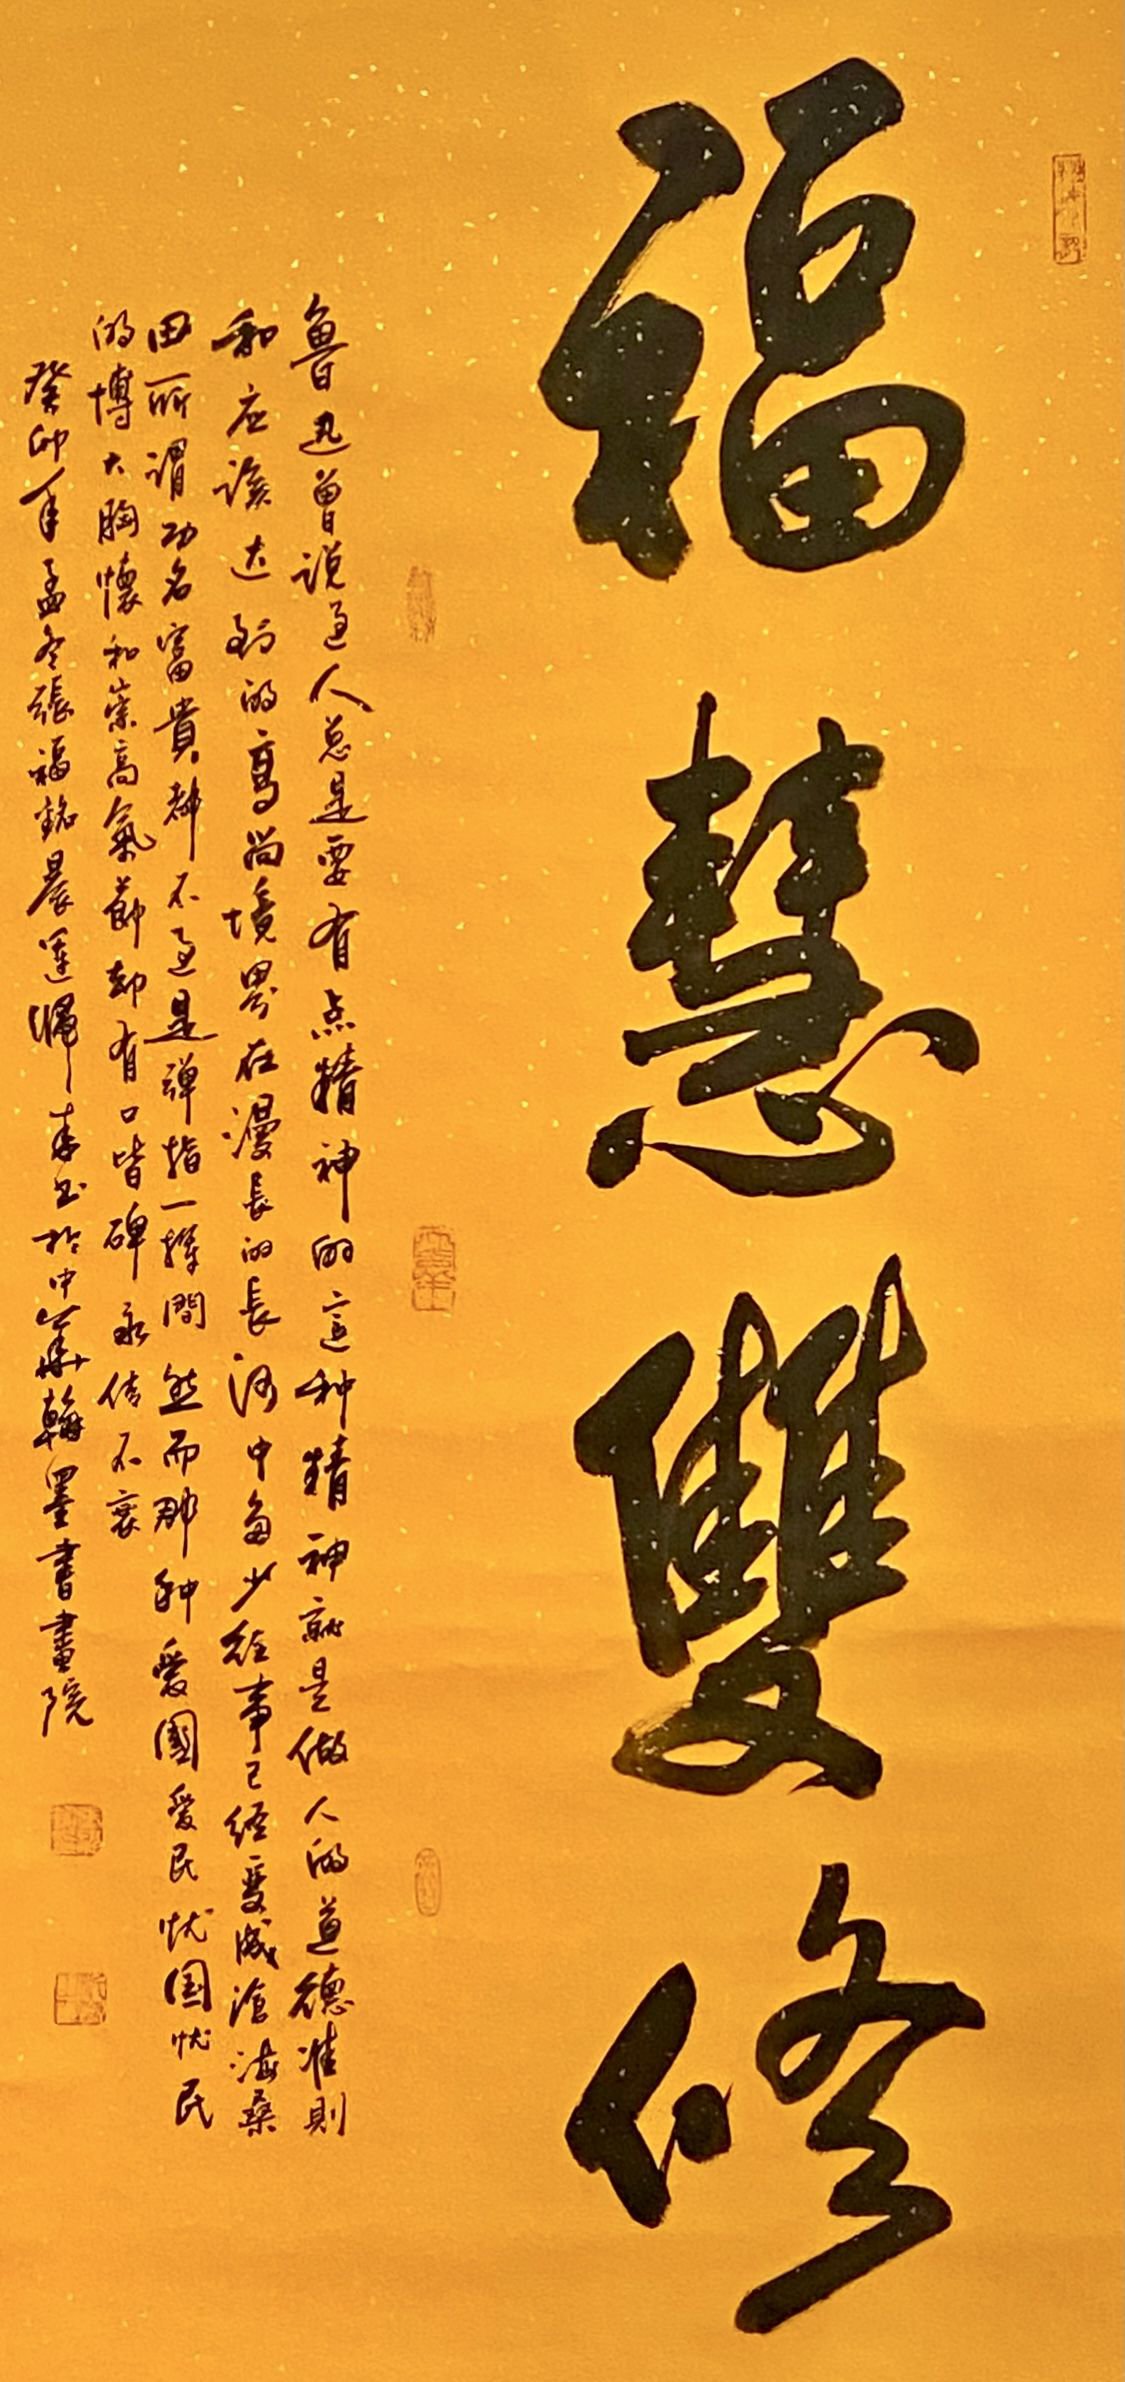 福慧雙修
魯迅曾说过人总是要有点精神的這种精神就是做人的道德准則
和应该达到的高尚境界在漫長的長河中多少往事已经变成滄海桑
田所谓功名富貴都不过是弹指一揮間然而那种爱國爱民忧国忧民
的博大胸懷和崇高氣節却有口皆碑永传不衰
癸卯年孟冬張福銘晨運歸来书於中華翰墨書畫院